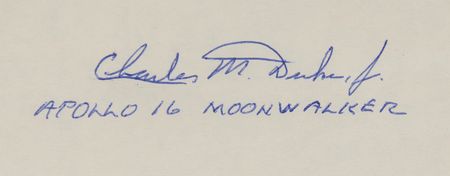 Charles M. Duke, Jr.
APOLLO 16 MOONWALKER